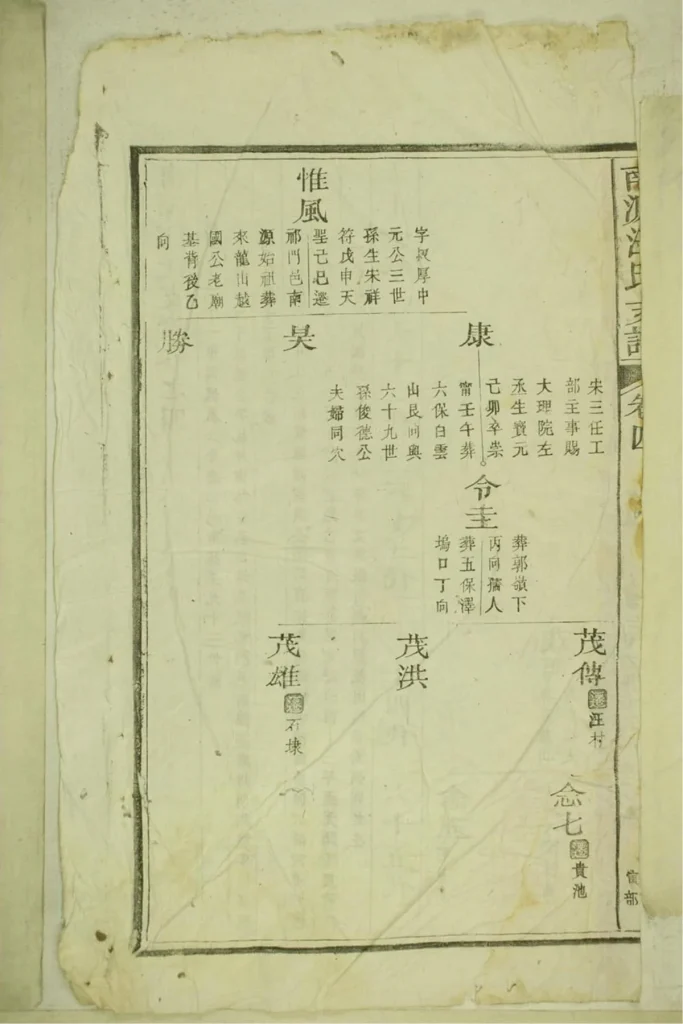 南源汪氏支譜
卷四
惟風
字叔厚中
元公三世
孫生宋祥
符戊申天
聖己巳遷
祁門邑南
源始祖葬
來龍山越
國公老廟
基背後乙
向
康
宋三任工
部主事賜
大理院左
丞生寶元
己卯卒崇
甯壬午葬
六保白雲
山艮向與
六十九世
孫俊德公
夫婦同穴
吴
勝
令圭
葬郭敬下
丙向孺人
葬五保澤
塢口丁向
茂傳
遷汪村
茂洪
茂雄
遷石埭
念七
遷貴池